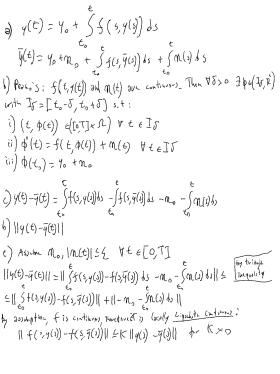 a) y(t) = y₀ + ∫_{t₀}^{t} f(s, y(s)) ds
ỹ(t) = y₀ + n₀ + ∫_{t₀}^{t} f(s, ỹ(s)) ds + ∫_{t₀}^{t} n(s) ds
b) Peano's: f(t, y(t)) and n(t) are continuous. Then ∀δ>0 ∃ φ
with I_δ = [t₀-δ, t₀+δ] s.t:
i) (t, φ(t)) ∈ [0,T] × Ω ∀ t ∈ Iδ
ii) φ'(t) = f(t, φ(t)) + n(t) ∀ t ∈ Iδ
iii) φ(t₀) = y₀ + n₀
c) y(t) - ỹ(t) = ∫_{t₀}^{t} f(s, y(s)) ds - ∫_{t₀}^{t} f(s, ỹ(s)) ds - n₀ - ∫_{t₀}^{t} n(s) ds
b) ||y(t) - ỹ(t)||
c) Assume n₀, |n(t)| ≤ ∀ t ∈ [0,T]
||y(t) - ỹ(t)|| = || ∫_{t₀}^{t} f(s, y(s)) - f(s, ỹ(s)) ds - n₀ - ∫_{t₀}^{t} n(s) ds || ≤
triangle inequality
≤ || ∫_{t₀}^{t} f(s, y(s)) - f(s, ỹ(s)) ds || + || - n₀ - ∫_{t₀}^{t} n(s) ds ||
by assumption, f is continuous, locally Lipschitz continuous:
|| f(s, y(s)) - f(s, ỹ(s)) || ≤ K || y(s) - ỹ(s) || for K > 0